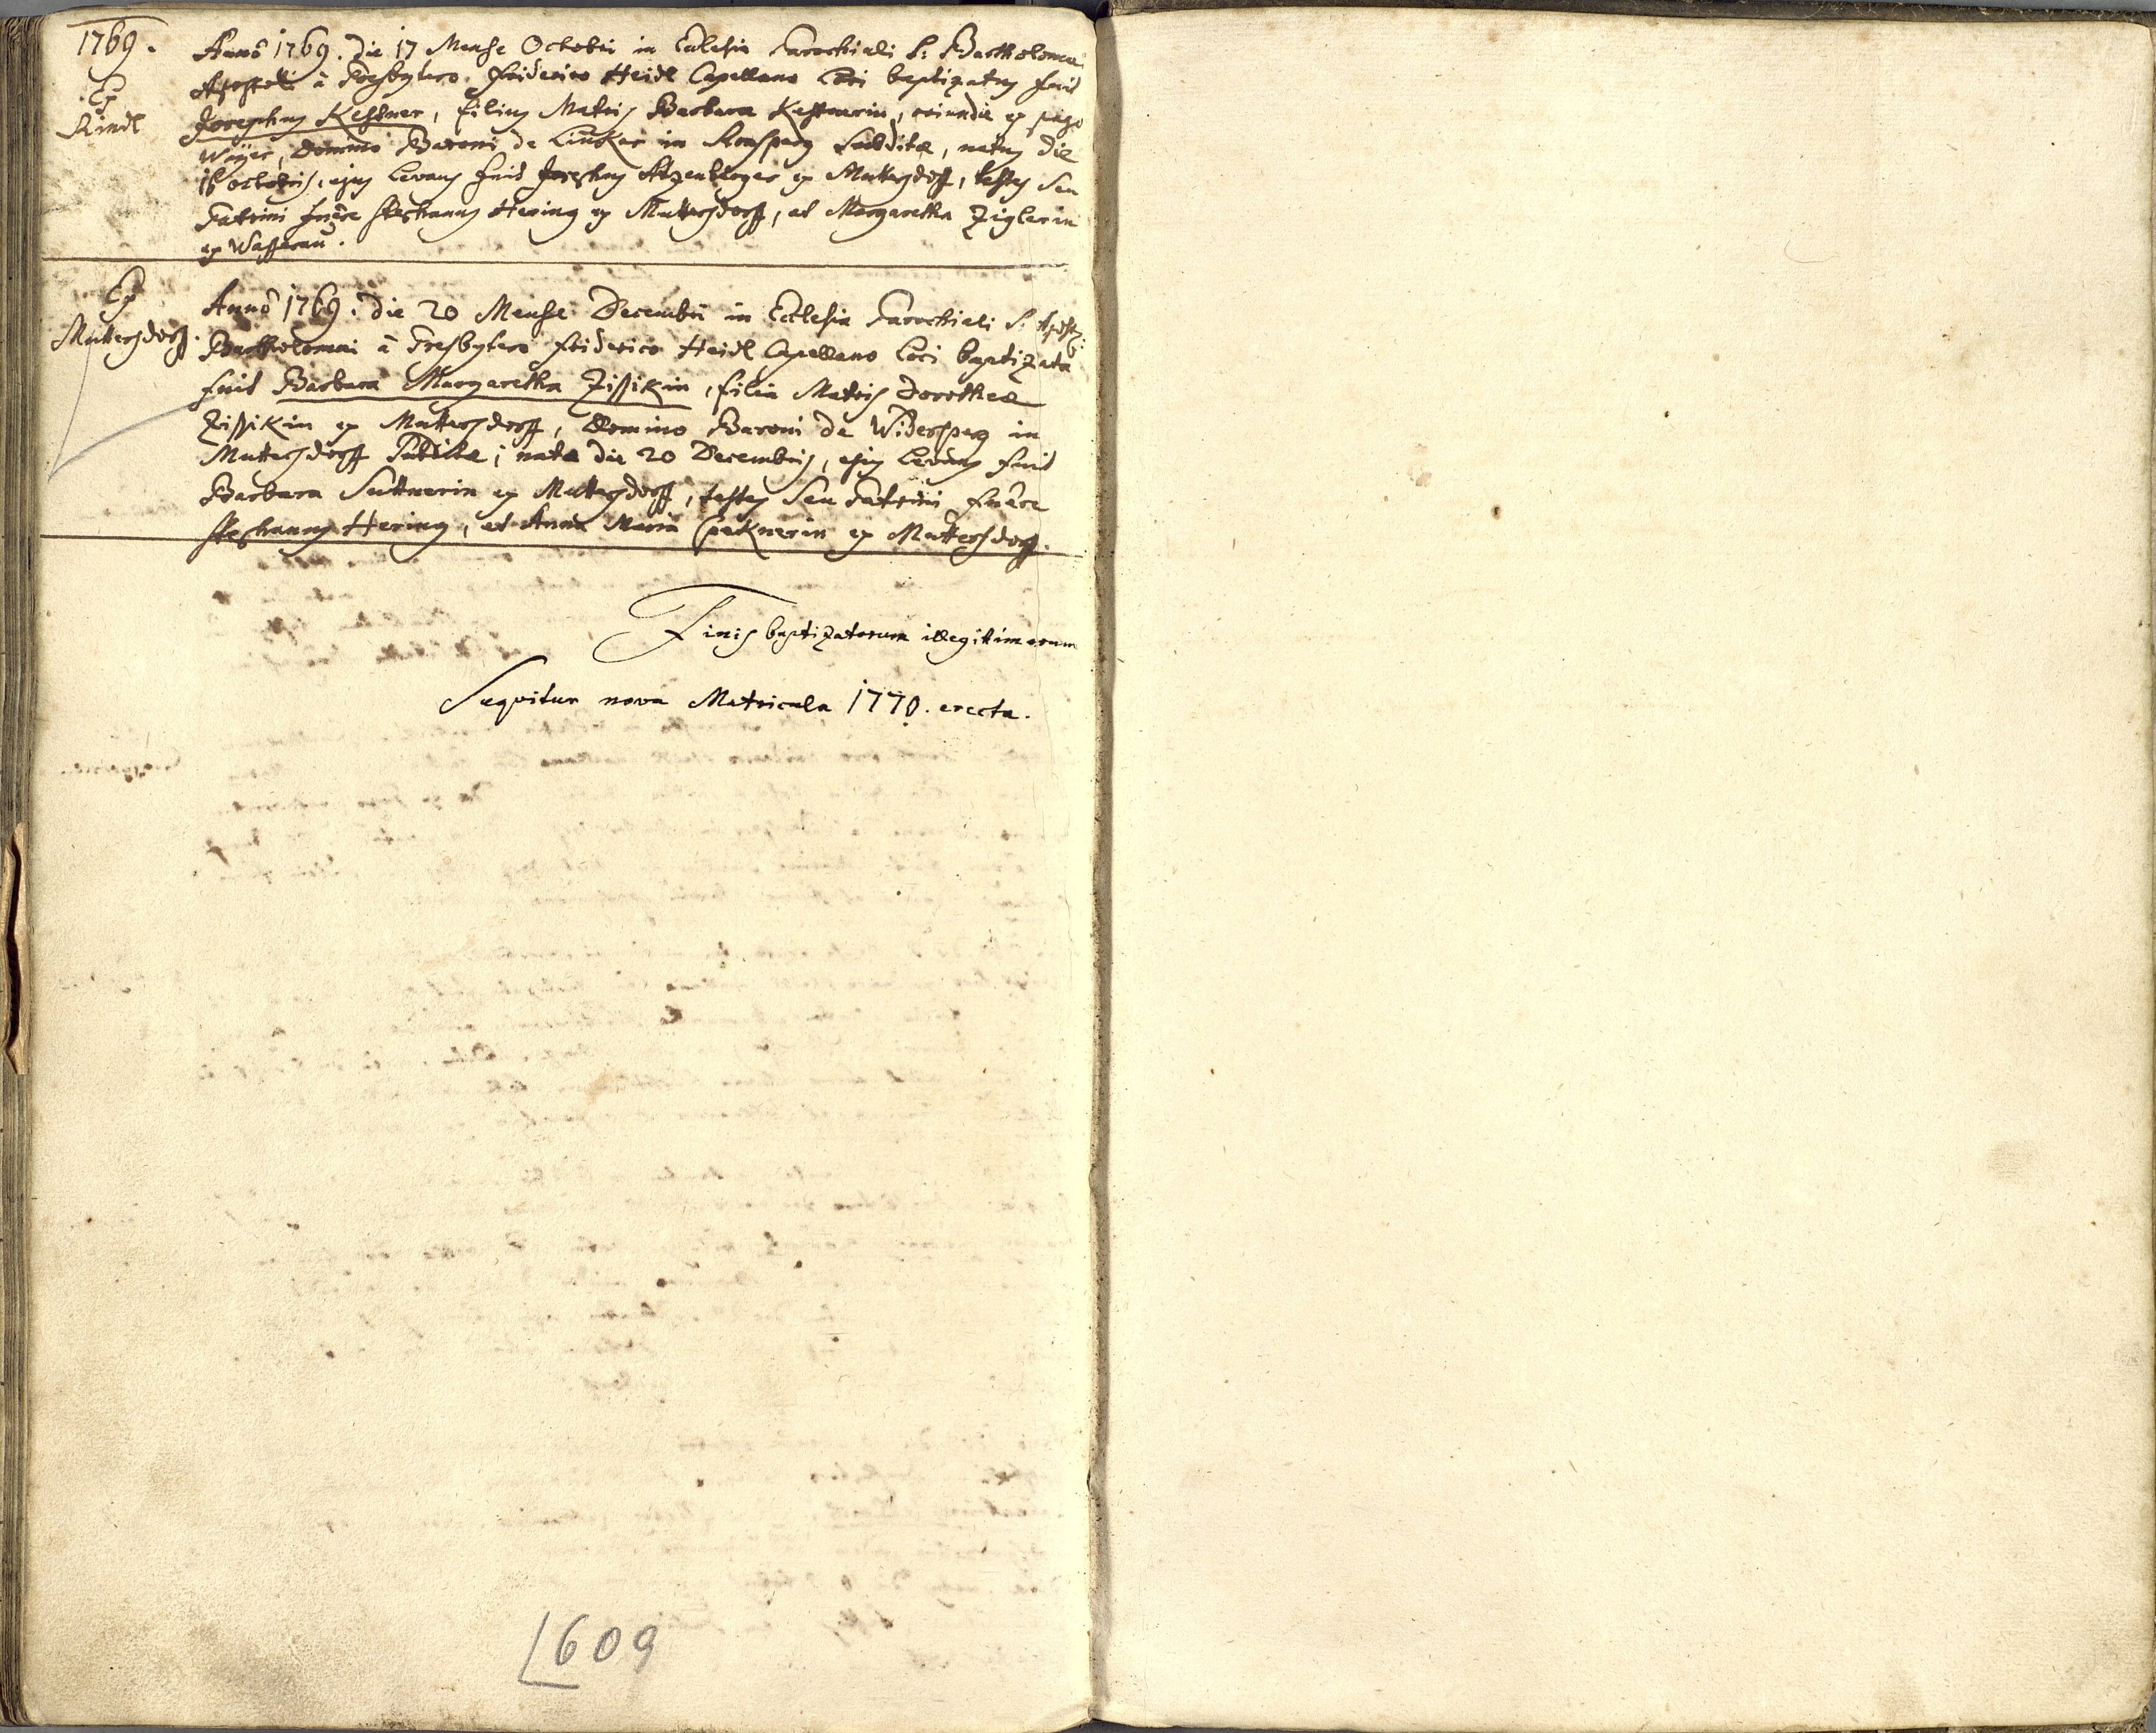 1769.
Ex
Rindl
Annô 1769. Die 17 Mense Octobri in Eclesia Parochiali S: Bartholomæi
Apostoli â Presbytero Friderico Heidl Capellano Loci baptizatus fuit
Josephus Kestner, filius Matris Barbara Kestnerin, oriundæ ex pago
Wayer, Domino Baroni de Linker in Ronsperg Subditæ, natus die
16 octobris, ejus Levans fuit Josephus ex Muttersdorff, testes seu
Patrini fuêre Stephanus Hering ex Muttersdorff, et Margaretha Ziglerin
ex Wasserau.
Ex
Muttersdorff.
Annô 1769. Die 20 Mense Decembri in Ecclesia Parochiali S. Apost:
Bartholomæi â Presbytero Friderico Heidl Capellano Loci baptizata
fuit Barbara Margaretha Zissikin, filia Matris Dorotheæ
Zissikin ex Muttersdorff, Domino Baroni de Widersperg in
Muttersdorff Subditæ, nata die 20 Decembris, ejus Levans fuit
Barbara Suttnerin ex Muttersdorff, testes seu Patrini fuêre
Stephanus Hering, et Anna Maria ex Muttersdorff.
Finis baptizatorum illegitimorum
Sequitur nova Matricula 1770. erecta.
609